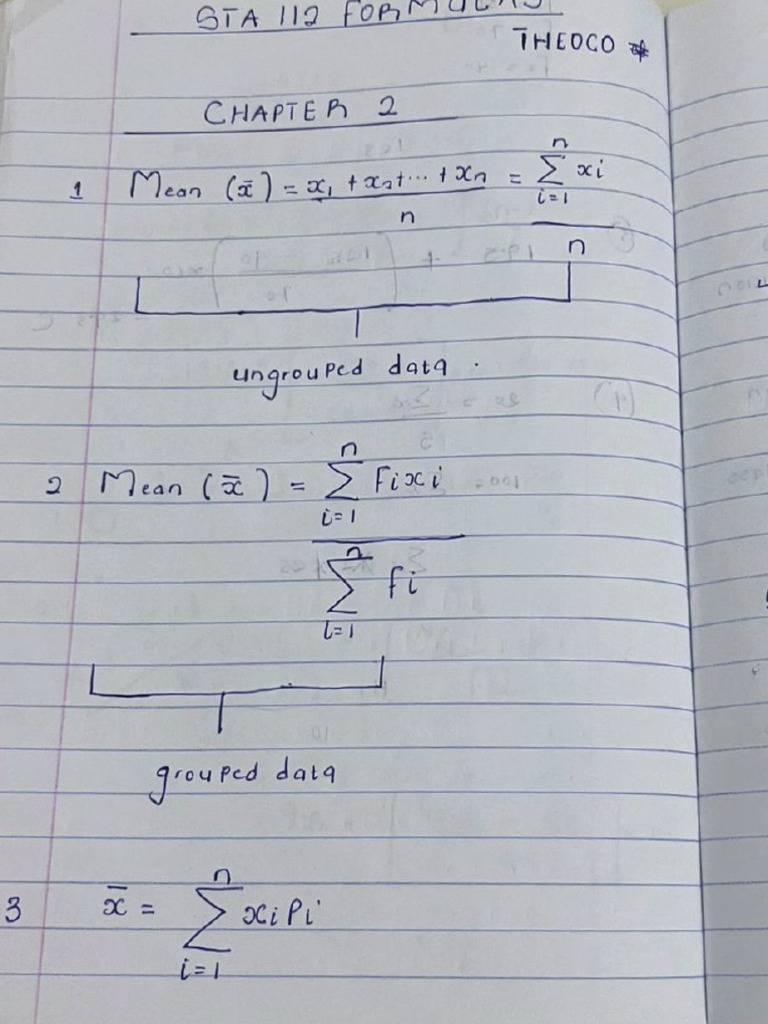 STA 112 FORMULAS
THEOCO *
CHAPTER 2
1 Mean (x̄) = x₁ + x₂ + ... + xₙ / n = ∑ⁿᵢ₌₁ xi / n
ungrouped data.
2 Mean (x̄) = ∑ⁿᵢ₌₁ Fixi / ∑ⁿᵢ₌₁ fi
grouped data
3 x̄ = ∑ⁿᵢ₌₁ xiPi